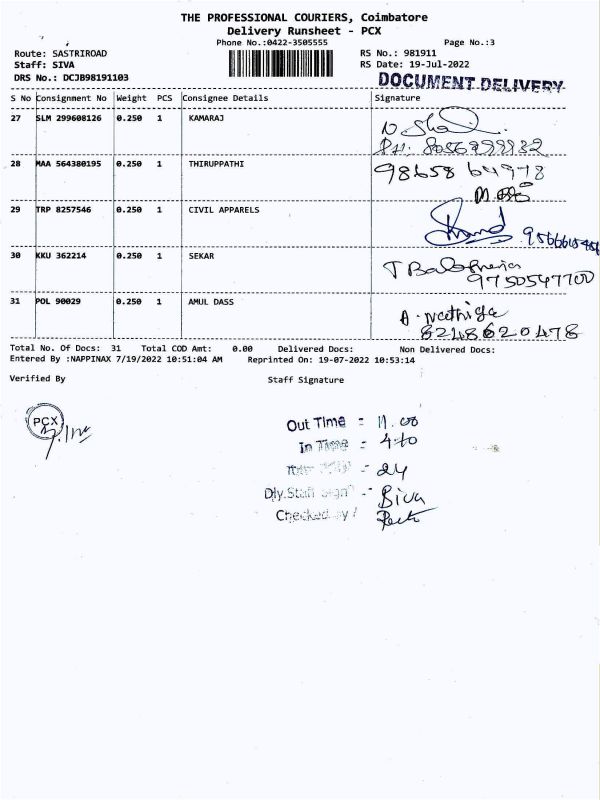 THE PROFESSIONAL COURIERS, Coimbatore
Delivery Runsheet - PCX
Phone No.:0422-3505555 Page No.:3
Route: SASTRIROAD RS No.: 981911
Staff: SIVA RS Date: 19-Jul-2022
DRS No.: DCJB98191103 DOCUMENT DELIVERY
S No Consignment No Weight PCS Consignee Details Signature
27 SLM 299608126 0.250 1 KAMARAJ
28 MAA 564380195 0.250 1 THIRUPPATHI 98658 64978
29 TRP 8257546 0.250 1 CIVIL APPARELS
30 KKU 362214 0.250 1 SEKAR
9750547700
31 POL 90029 0.250 1 AMUL DASS
8248620478
Total No. Of Docs: 31 Total COD Amt: 0.00 Delivered Docs: Non Delivered Docs:
Entered By :NAPPINAX 7/19/2022 10:51:04 AM Reprinted On: 19-07-2022 10:53:14
Verified By Staff Signature
PCX
Out Time = 11.00
In Time = 4.10
= 24
Dly.Staff Sign - Siva
Checked by /